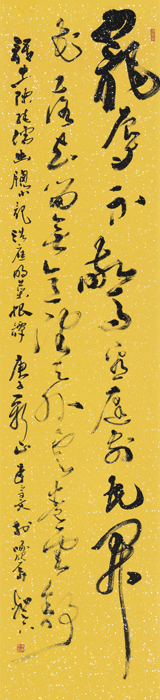 寵辱不驚看庭前花開
花落去留無意望天外雲卷雲舒
陳繼儒幽窗小記洪應明菜根譚 庚子